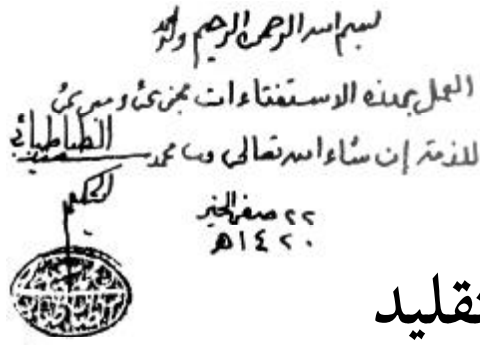 بسم الله الرحمن الرحيم وله الحمد
العمل بهذه الاستفتاءات مجزئ ومبرئ
للذمة إن شاء الله تعالى محمد سعيد
الطباطبائي
الحكيم
٢٢ صفر الخير
١٤٢٠هـ
تقليد